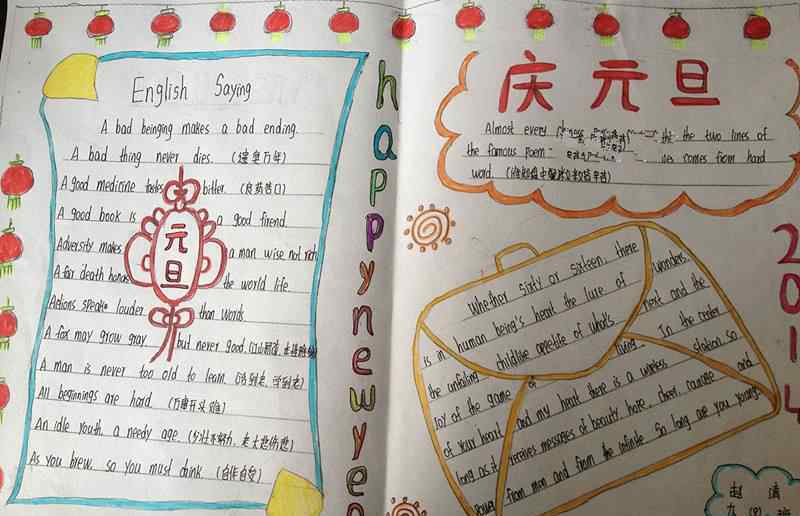 English Saying
A bad beinging makes a bad ending.
A bad thing never dies. (遗臭万年)
A good medicine tastes bitter. (良药苦口)
A good book is a good firend.
Adversity makes a man wise not rich
A far death honors the world life
Actions speak louder than words
A fox may grow gray but never good.
A man is never too old to learn. (活到老,学到老)
All beginnings are hard. (万事开头难)
An idle youth, a needy age. (少壮不努力,老大徒伤悲)
As you brew, so you must drink. (自作自受)
元旦
happy new yea
庆元旦
Almost every the the two lines of
the famous poem comes from hard
word.
Whether sixty or sixteen, there
is in human being's heart the lure of wonders.
the unfailing childlike appetite of what's next and the
joy of the game of living. In the center
of your heart and my heart there is a wireless station so
long as it receives messages of beauty, hope, cheer, courage and
power from man and from the infinite so long are you young.
2014
赵清
九(8)班